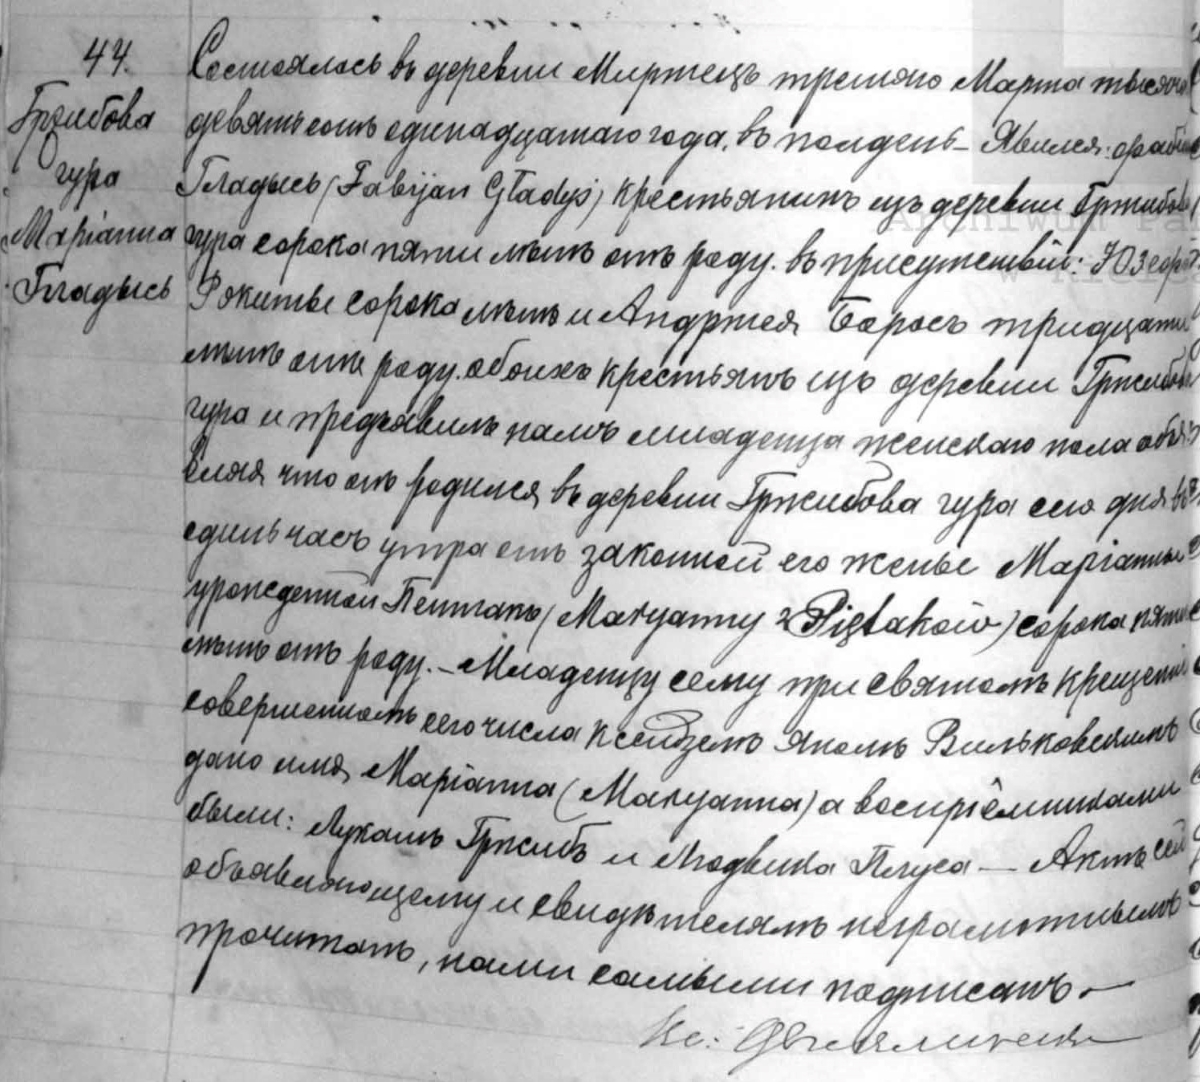 44.
Гржибова
гура
Маріанна
Гладысь
Состоялось въ деревни Миржецъ третяго Марта тысяча
девятьсотъ единадцатаго года, въ полдень – Явился: Фабі
Гладысь (Fabijan Gładyś) крестьянинъ изъ деревни Гржибова
гура сорока пяти лѣтъ отъ роду. въ присутствіи: Юзефа
Рокиты сорока лѣтъ и Андржея Борось тридцати
лѣтъ отъ роду. обоихъ крестьянъ изъ деревни Гржибова
гура и предъявилъ намъ младенца женскаго пола объя
вляя что онъ родился въ деревни Гржибова гура сего дня въ
единъ часъ утра отъ законной его жены Маріанны
урожденной Пентакъ (Maryanny z Piętaków) сорока пяти
лѣтъ отъ роду. – Младенцу сему при святомъ крещеніи
совершенномъ сего числа ксендземъ Яномъ Вильковскимъ
дано имя Маріанна (Maryanna) а воспріемниками
были: Лукашъ Гржибъ и Людвика Плуса — Актъ сей
объявляющему и свидѣтелямъ неграмотнымъ
прочитанъ, нами самыми подписанъ. —
Кс: